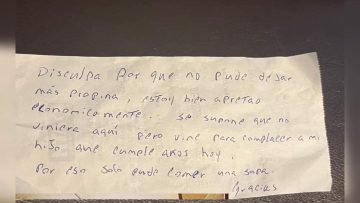 Disculpa por que no pude dejar
más propina, estoy bien apretao
economicamente. se supone que no
viniera aquí pero vine para complacer a mi
hijo que cumple años hoy.
Por eso solo pude comer una sopa.
Gracias